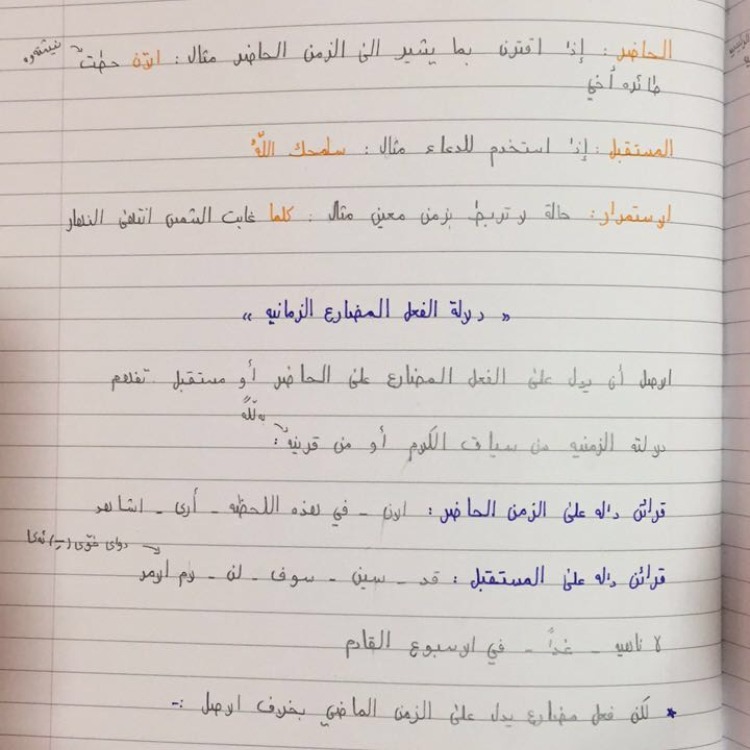 الحاضر : إذا اقترن بما يشير الى الزمن الحاضر مثال : الآن حطت نیشتەوە
طائره أخي
المستقبل : إذا استخدم للدعاء مثال : سامحك اللّٰهُ
الاستمرار : حالة لا تربط بزمن معين مثال : كلما غابت الشمس انتهى النهار
« دلالة الفعل المضارع الزمانيه »
الاصل أن يدل على الفعل المضارع على الحاضر أو مستقبل . تفهم
بەڵگە
دلالته الزمنيه من سياق الكلام أو من قرينه :
قرائن داله على الزمن الحاضر : الان - في هذه اللحظه - أرى - اشاهد
دوای خۆی (ــِـ) ئەکا
قرائن داله على المستقبل : قد - سين - سوف - لن - لام الامر
لا ناهيه - غداً - في الاسبوع القادم
* لكن فعل مضارع يدل على الزمن الماضي بخلاف الاصل :-